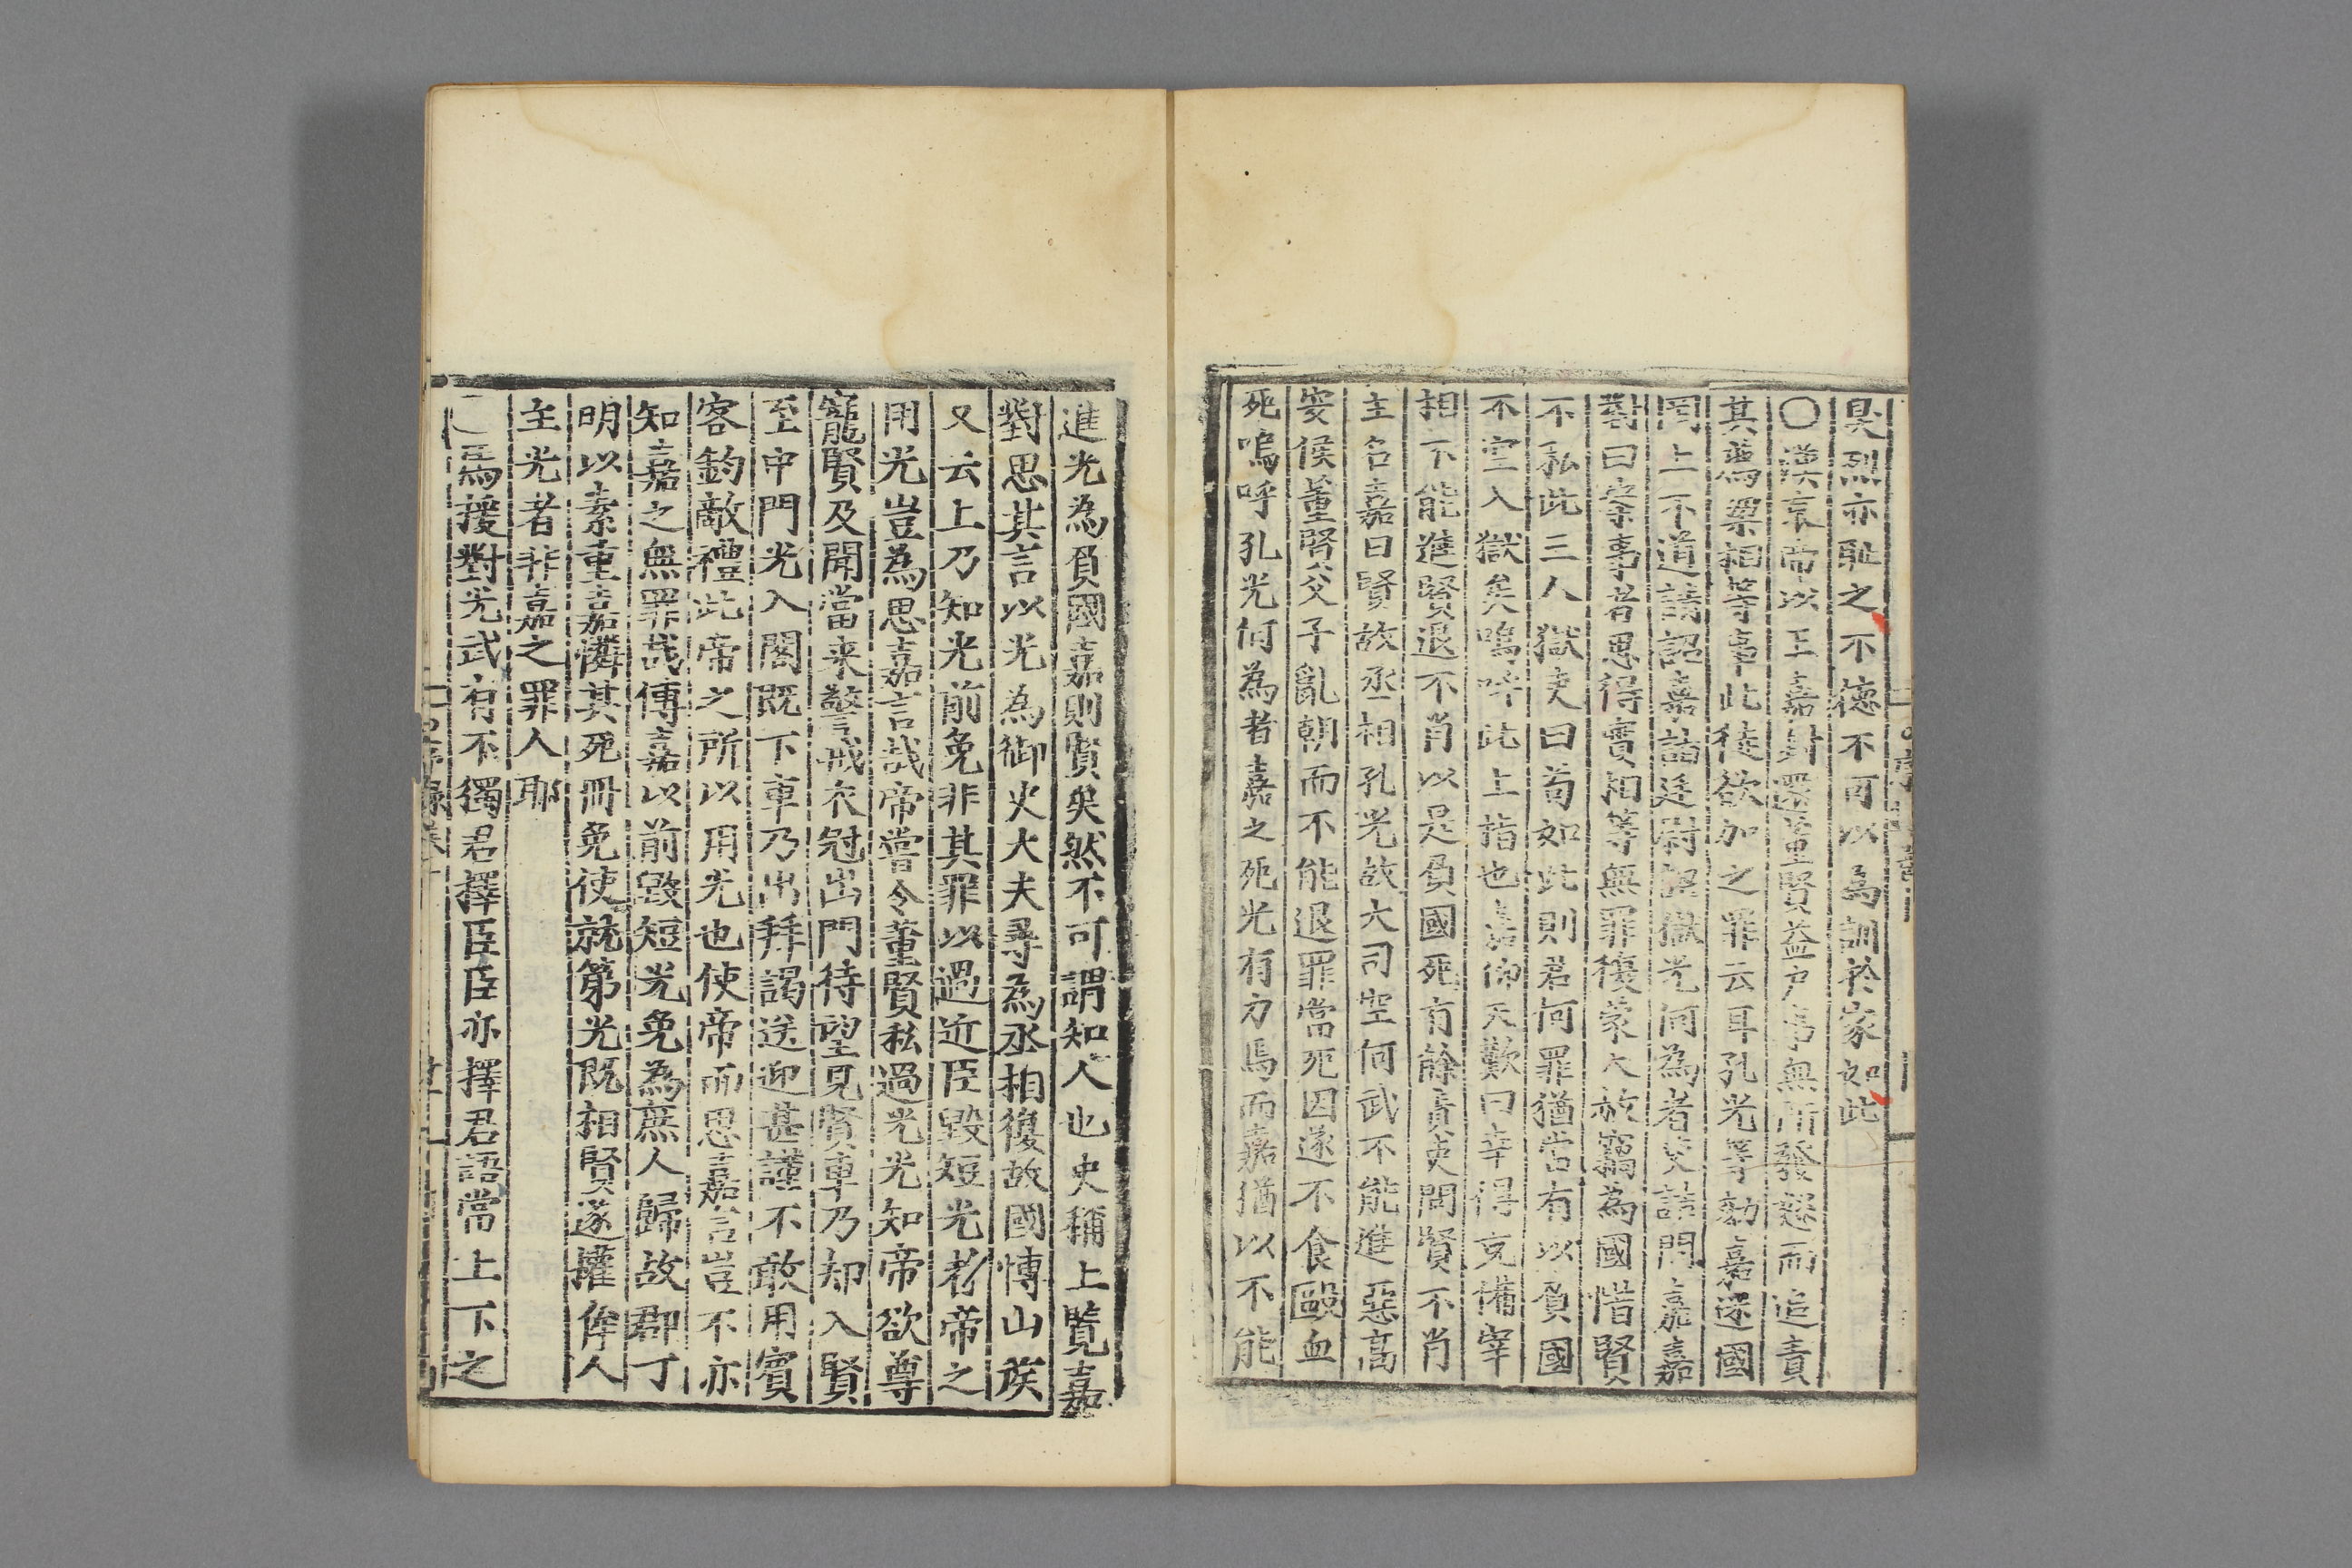 臭烈亦恥之不德不可以爲訓於家如此
〇漢哀帝以王嘉封還董賢益户事無所發怒而追責
其薦梁相等事此徒欲加之罪云耳孔光等劾嘉迷國
罔上不道請詔嘉詣廷尉詔獄光何為者吏詰問嘉嘉
對曰案事者思得實相等無罪復蒙大赦竊為國惜賢
不私此三人獄吏曰苟如此則君何罪猶當有以負國
不空入獄矣嗚呼此上指也嘉仰天歎曰幸得充備宰
相不能進賢退不肖以是負國死有餘責吏問賢不肖
主名嘉曰賢故丞相孔光故大司空何武不能進惡高
安侯董賢父子亂朝而不能退罪當死囚遂不食毆血
死嗚呼孔光何為者嘉之死光有力焉而嘉猶以不能
進光為負國嘉則賢矣然不可謂知人也史稱上覽嘉
對思其言以光為御史大夫尋為丞相復故國博山矦
又云上乃知光前免非其罪以過近臣毀短光者帝之
用光豈為思嘉言哉帝嘗令董賢私過光光知帝欲尊
寵賢及聞當来警戒衣冠出門待望見賢車乃却入賢
至中門光入閤既下車乃出拜謁送迎甚謹不敢用賓
客鈞敵禮此帝之所以用光也使帝而思嘉言豈不亦
知嘉之無罪哉傅嘉以前毀短光免為庶人歸故郡丁
明以素重嘉憐其死冊免使就第光既相賢遂擢侔人
主光者非嘉之罪人耶
〇馬援對光武有不獨君擇臣臣亦擇君語當上下之